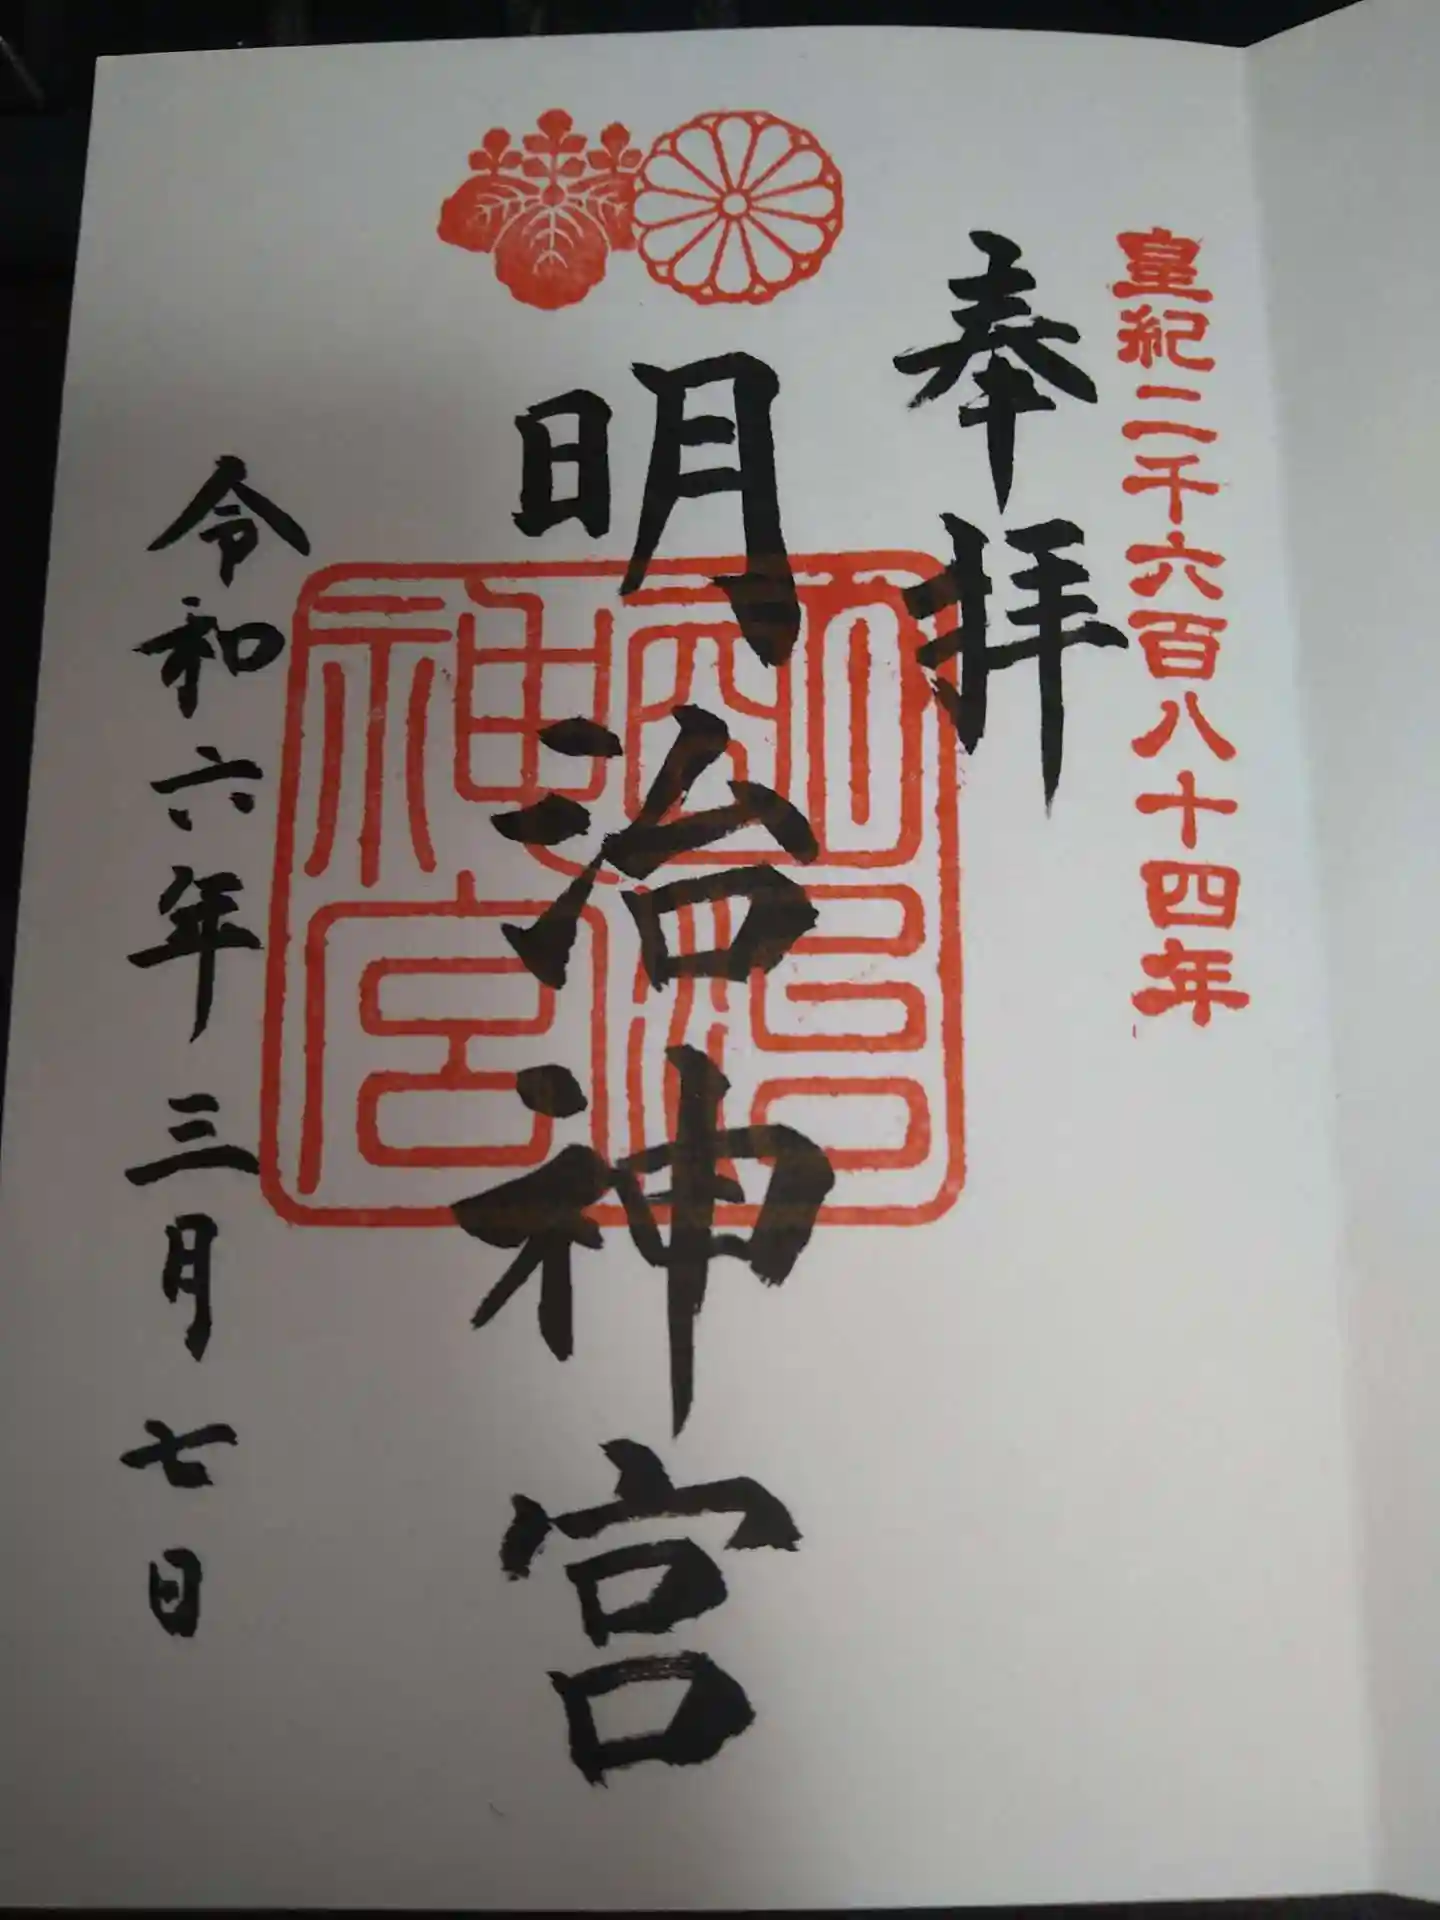 皇紀二千六百八十四年
奉拝
明治神宮
明治神宮
令和六年三月七日